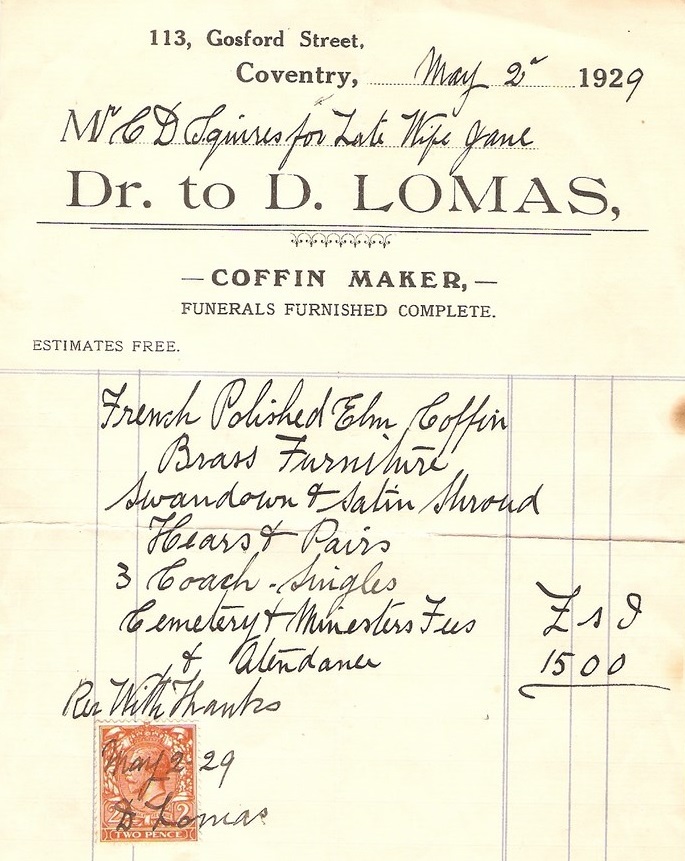 113, Gosford Street,
Coventry, May 2ⁿ 1929
Mr C D Squires for Late Wife Jane
Dr. to D. LOMAS,
— COFFIN MAKER, —
FUNERALS FURNISHED COMPLETE.
ESTIMATES FREE.
French Polished Elm Coffin
Brass Furniture
Swandown & Satin Shroud
Hears & Pairs
3 Coach - Singles
Cemetery & Minesters Fees £ s d
& Atendance 15 0 0
Rec With Thanks
May 2 29
D Lomas
2 2
TWO PENCE